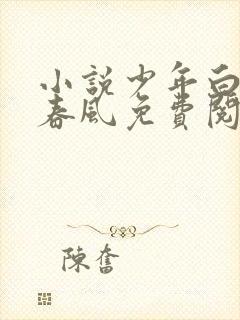 小説少年白
春風免費閱
陳奮